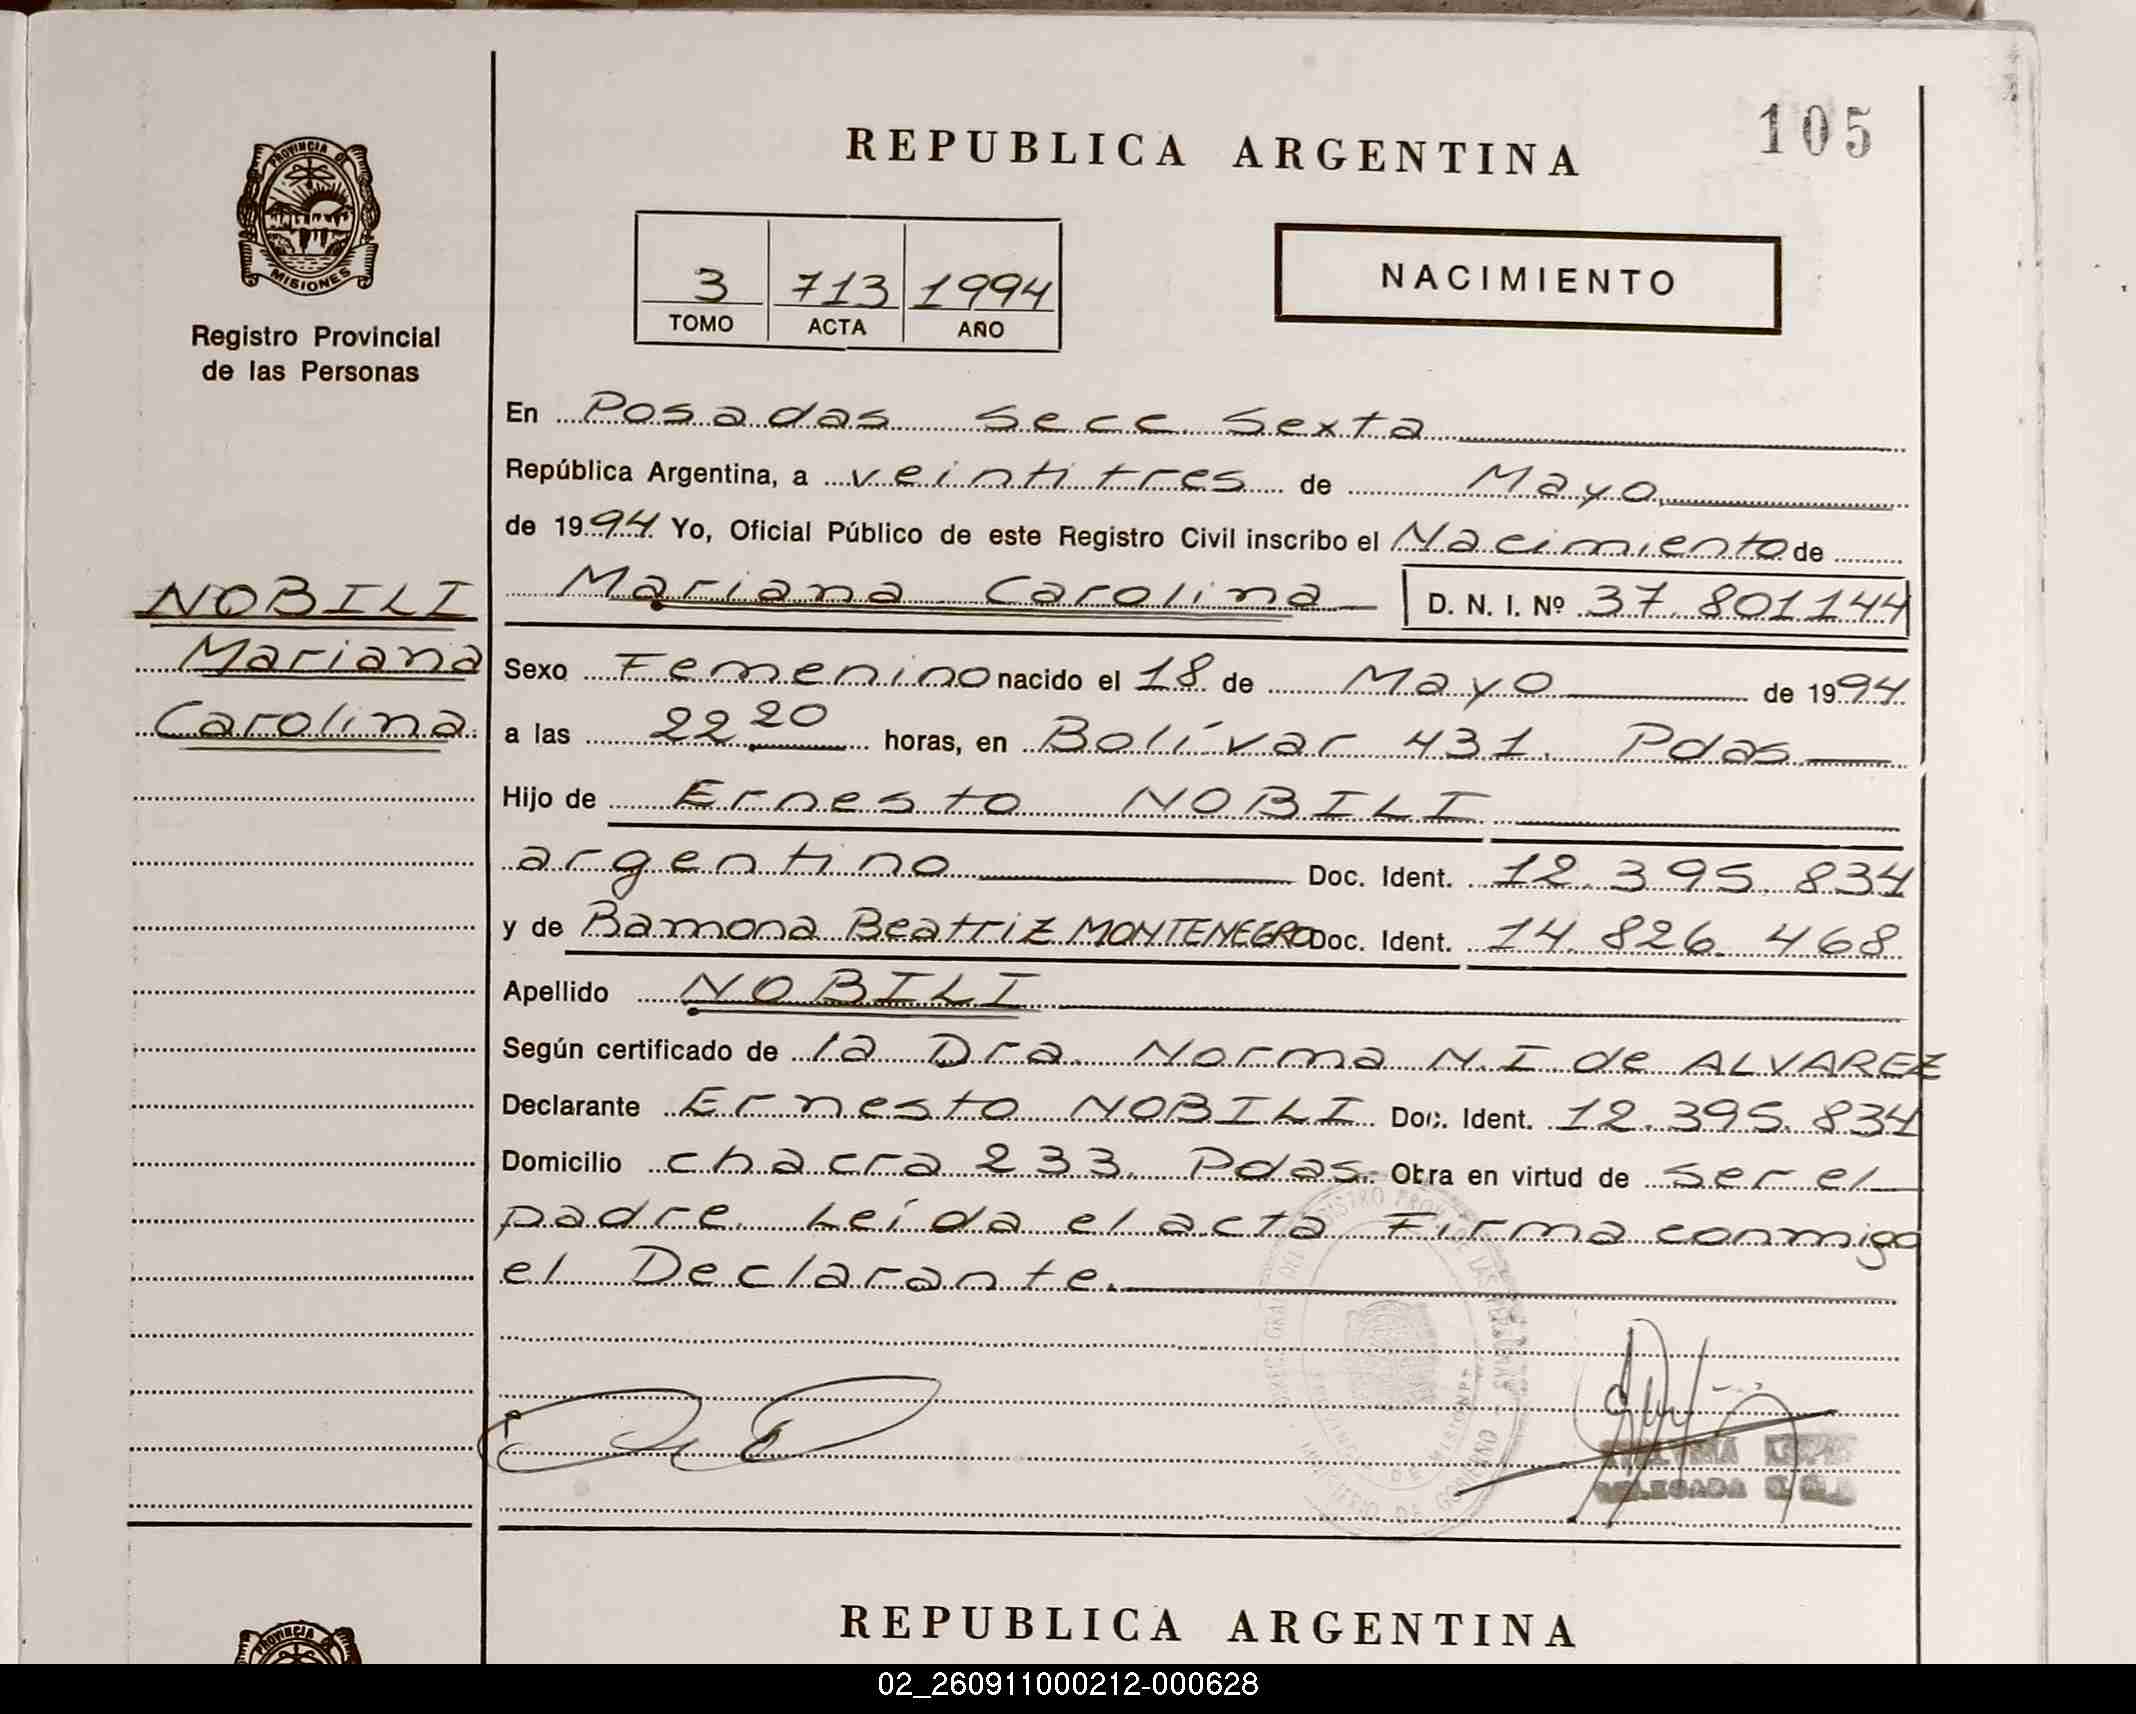 105
REPUBLICA ARGENTINA
PROVINCIA DE
MISIONES
3 713 1994
TOMO ACTA AÑO
NACIMIENTO
Registro Provincial
de las Personas
NOBILI
Mariana
Carolina
En Posadas Secc. Sexta
República Argentina, a veintitres de Mayo
de 1994 Yo, Oficial Público de este Registro Civil inscribo el Nacimiento de
Mariana Carolina D. N. I. Nº 37.801144
Sexo Femenino nacido el 18 de Mayo de 1994
a las 22 20 horas, en Bolívar 431. Pdas
Hijo de Ernesto NOBILI
argentino Doc. Ident. 12.395.834
y de Ramona Beatriz MONTENEGRO Doc. Ident. 14.826.468
Apellido NOBILI
Según certificado de la Dra. Norma N.I. de ALVAREZ
Declarante Ernesto NOBILI Doc. Ident. 12.395.834
Domicilio chacra 233. Pdas. Obra en virtud de ser el
padre. Leída el acta Firma conmigo
el Declarante.
REPUBLICA ARGENTINA
PROVINCIA DE
02_260911000212-000628